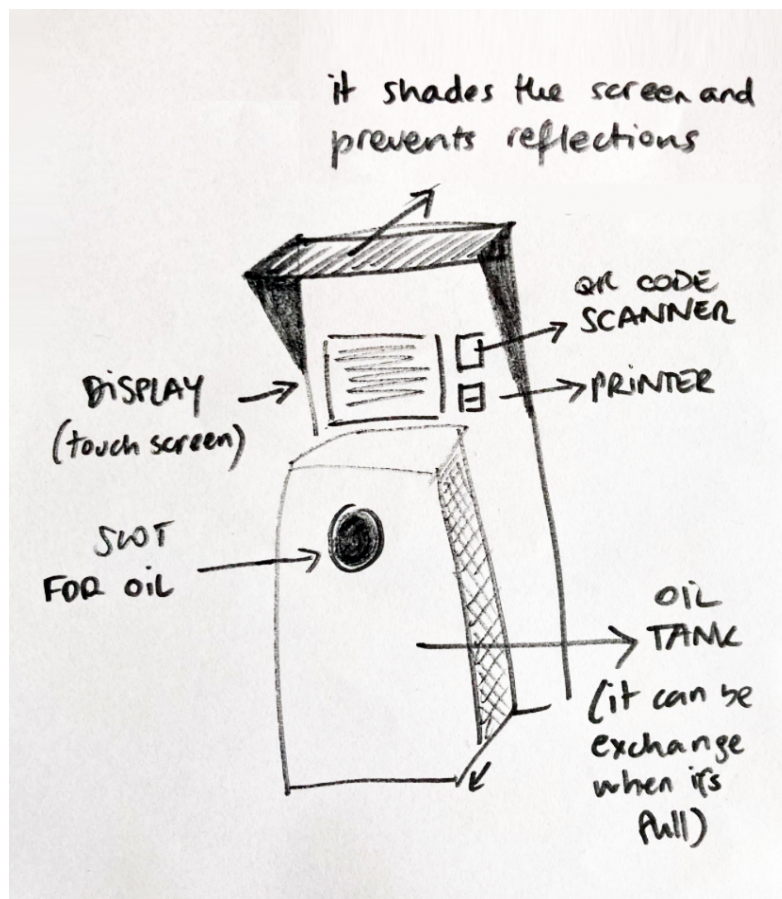 it shades the screen and
prevents reflections
QR CODE
SCANNER
PRINTER
DISPLAY
(touch screen)
SLOT
FOR OIL
OIL
TANK
(it can be
exchange
when it's
full)